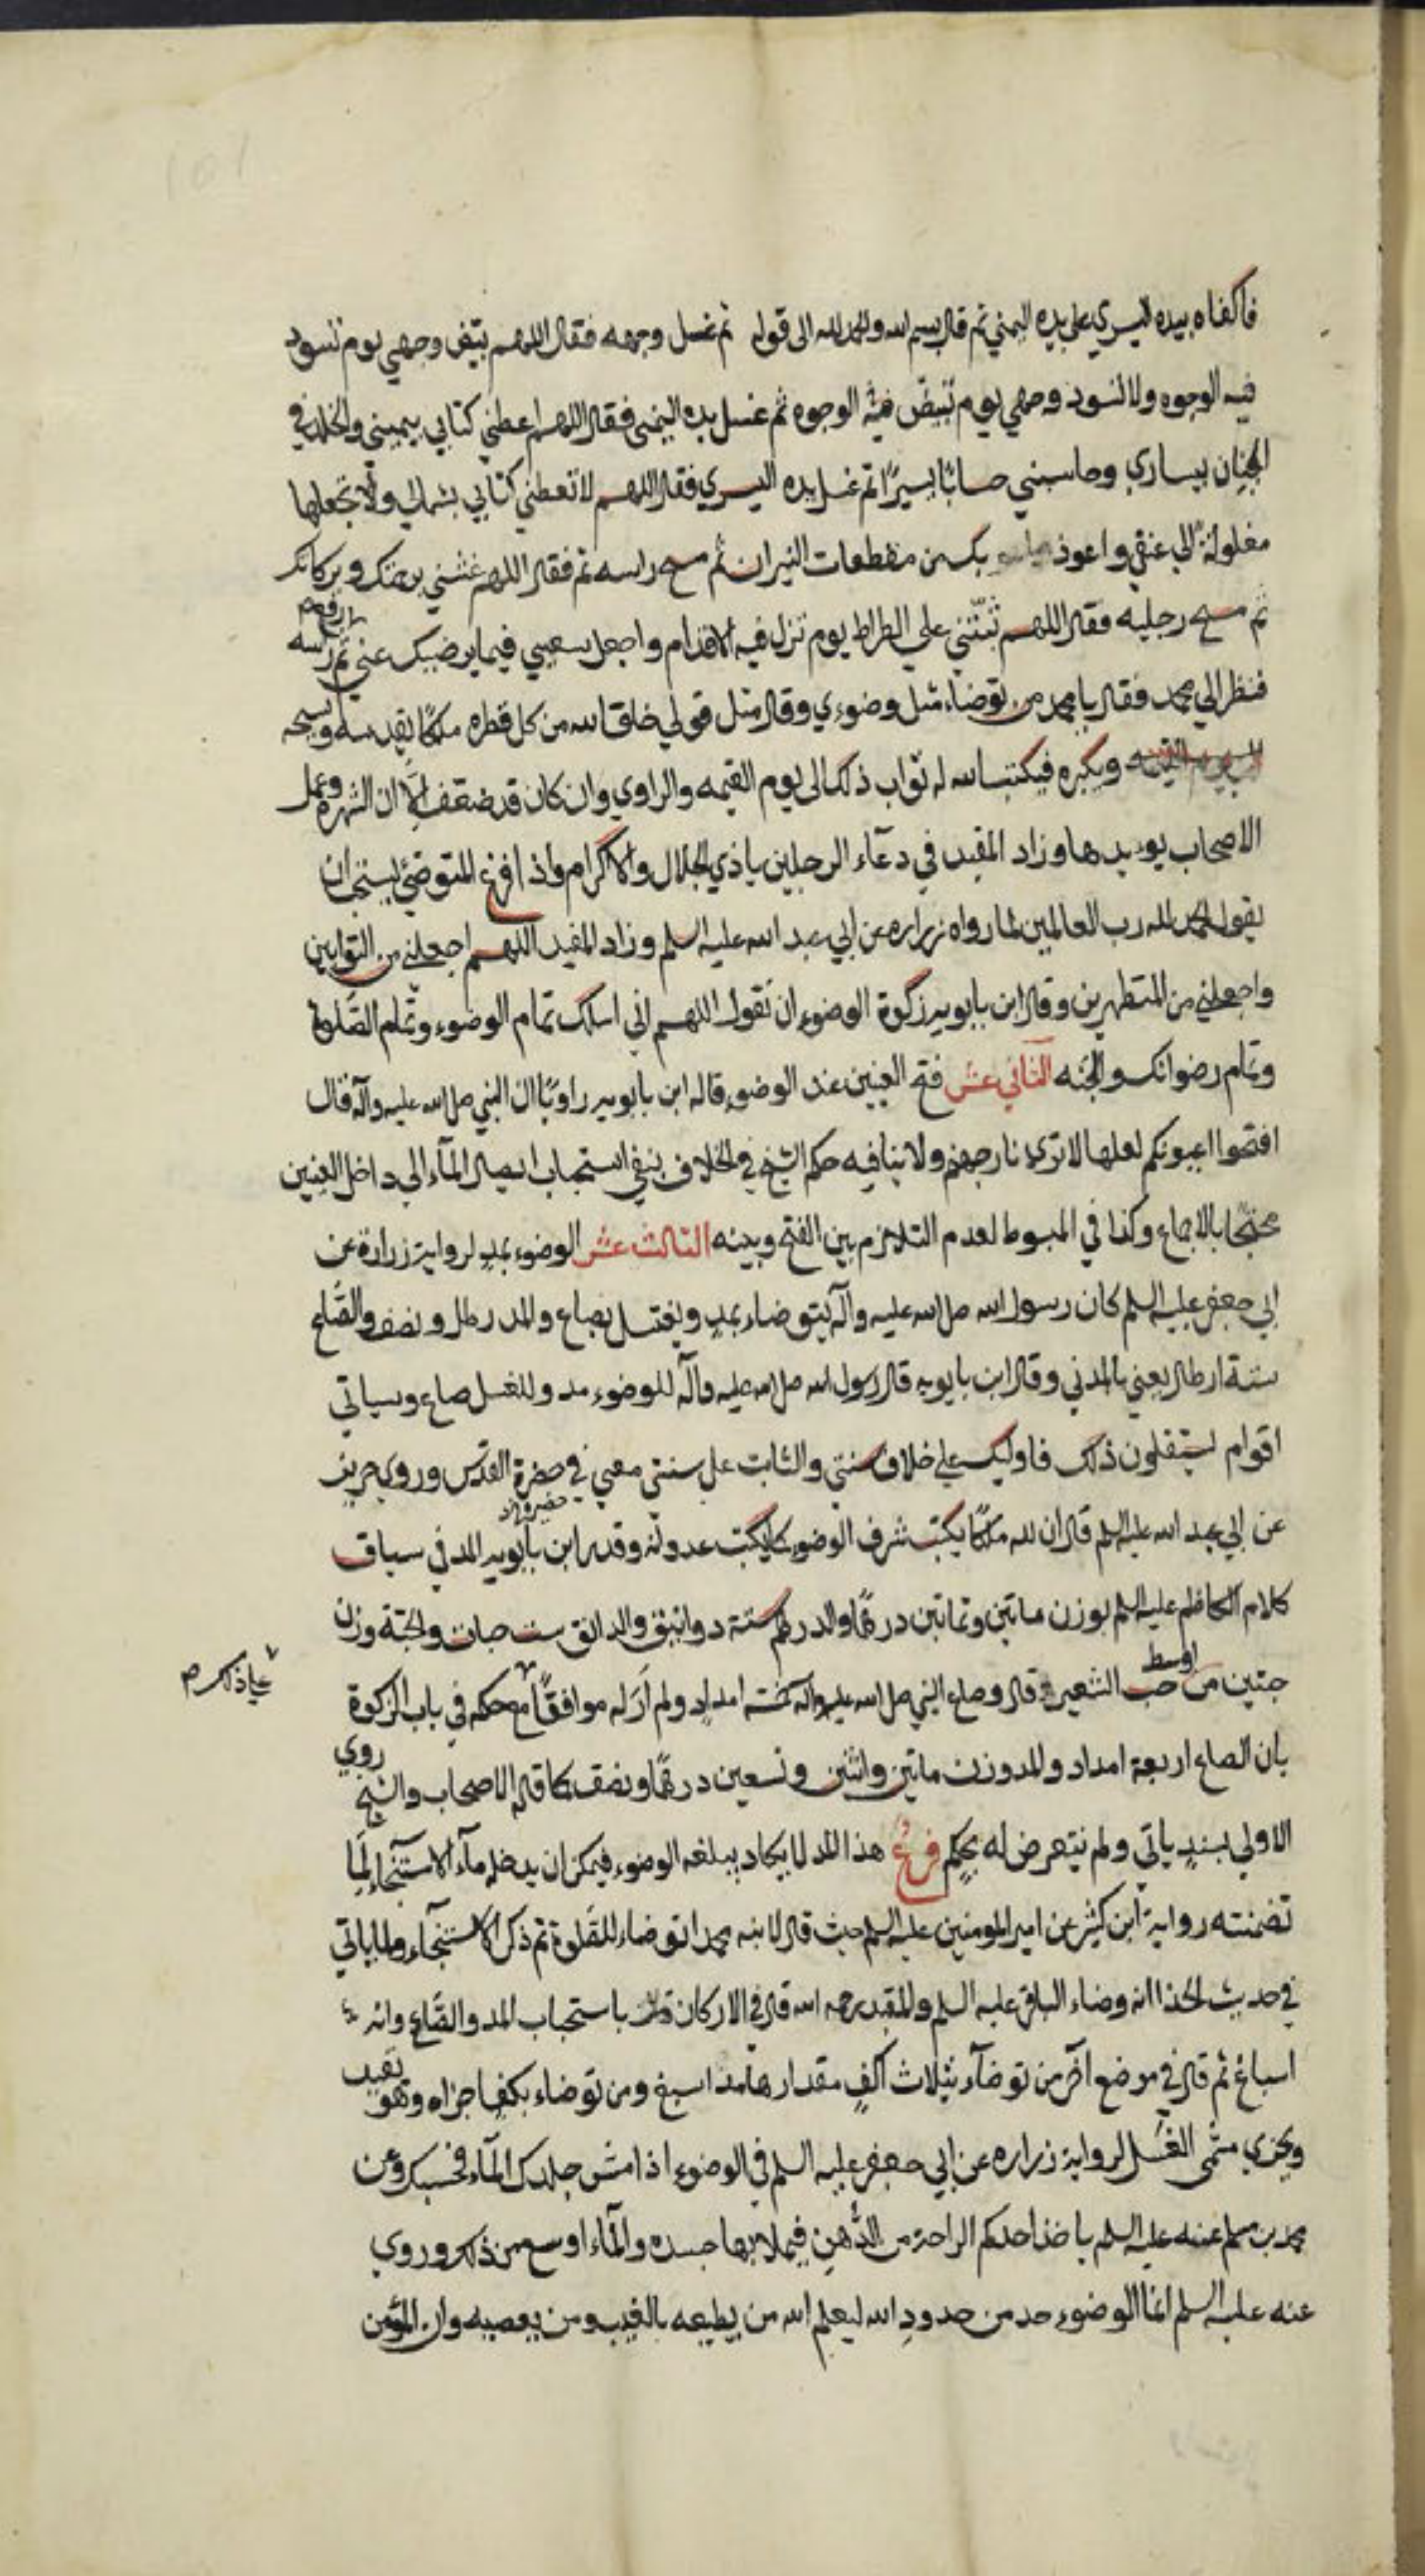 فاكفاه بيده اليسري علي يده اليمني ثم قال بسم الله والحمد لله الى قوله ثم غسل وجهه فقال اللهم بيض وجهي يوم تسود
فيه الوجوه ولا تسود وجهي يوم تبيض فيه الوجوه ثم غسل يده اليمنى فقال اللهم اعطني كتابي بيميني والخلد في
الجنان بيساري وحاسبني حسابًا يسيرًا ثم غسل يده اليسري فقال اللهم لا تعطني كتابي بشمالي ولا تجعلها
مغلولة الي عنقي واعوذ بك من مقطعات النيران ثم مسح راسه ثم فقال اللهم غشني برحمتك وبركاتك
ثم مسح رجليه فقال اللهم ثبتني علي الصراط يوم تزل فيه الاقدام واجعل سعيي فيما يرضيك عني ثم رفع راسه
فنظر الي محمد فقال يا محمد من توضاء مثل وضوءي وقال مثل قولي خلق الله من كل قطره ملكًا يقدسه ويسبحه
ويكبره فيكتب الله له ثواب ذلك الى يوم القيمه والراوي وان كان قد ضعف الا ان الشهرة وعمل
الاصحاب يويدها وزاد المفيد في دعآء الرجلين يا ذي الجلال والاكرام واذا فرغ المتوضئ يستحب ان
يقول الحمد لله رب العالمين لما رواه زراره عن ابي عبد الله عليه السلم وزاد المفيد اللهم اجعلني من التوابين
واجعلني من المتطهرين وقال ابن بابويه زكوة الوضوء ان تقول اللهم اني اسالك تمام الوضوء وتمام الصلوة
وتمام رضوانك والجنه الثاني عشر فتح العينين عند الوضوء قاله ابن بابويه راويًا ان النبي صلى الله عليه وآله قال
افتحوا اعيونكم لعلها لا تري نار جهنم ولا ينافيه حكم الشيخ في الخلاف بنفي استحباب ايصال المآء الي داخل العينين
محتجًا بالاجماع وكذا في المبسوط لعدم التلازم بين الفتح وبينه الثالث عشر الوضوء بمد لرواية زرارة عن
ابي جعفر عليه السلم كان رسول الله صلى الله عليه وآله يتوضاء بمد ويغتسل بصاع والمد رطل ونصف والصاع
ستة ارطال يعني بالمدني وقال ابن بابويه قال رسول الله صلى الله عليه وآله للوضوء مد وللغسل صاع وسياتي
اقوام يستقلون ذلك فاوليك علي خلاف سنتي والثابت على سنتي معي في حضرة القدس وروي حريز
عن ابي عبد الله عليه السلم قال ان لله ملكًا يكتب شرف الوضوء كما يكتب عدوانه وقدر ابن بابويه المد في سياق
كلام الكاظم عليه السلم بوزن مايتين وثمانين درهمًا والدرهم ستة دوانيق والدانق ست حبات والحبة وزن
حبتين من اوسط حب الشعير وقال وصاع النبي صلى الله عليه وآله خمسة امداد ولم ار له موافقًا مع حكمه في باب الزكوة
علي ذلك م
بان الصاع اربعة امداد والمد وزن مايتين واثنين وتسعين درهمًا ونصف كما قاله الاصحاب والشيخ روي
الاولي بسند ياتي ولم يتعرض له بحكم فرع هذا المد لا يكاد يبلغه الوضوء فيمكن ان يدخل مآء الاستنجآء لما
تضمنته رواية ابن كثير عن امير المومنين عليه السلم حيث قال لابنه محمد اتوضاء للصلوة ثم ذكر الاستنجآء ولما ياتي
في حديث الحذا انه وضاء الباقر عليه السلم والمفيد رحمه الله قال في الاركان باستحباب المد والصاع وانه
اسباغ ثم قال في موضع آخر من توضآء بثلاث اكف مقدارها مد اسبغ ومن توضاء بكف اجزاه وهو بعيد
ويجزي مسمى الغسل لرواية زراره عن ابي جعفر عليه السلم في الوضوء اذا مس جلدك المآء فحسبك وعن
محمد بن مسلم عنه عليه السلم ياخذ احدكم الراحة من الدهن فيملا بها جسده والمآء اوسع من ذلك وروي
عنه عليه السلم انما الوضوء حد من حدود الله ليعلم الله من يطيعه بالغيب ومن يعصيه وان المؤمن